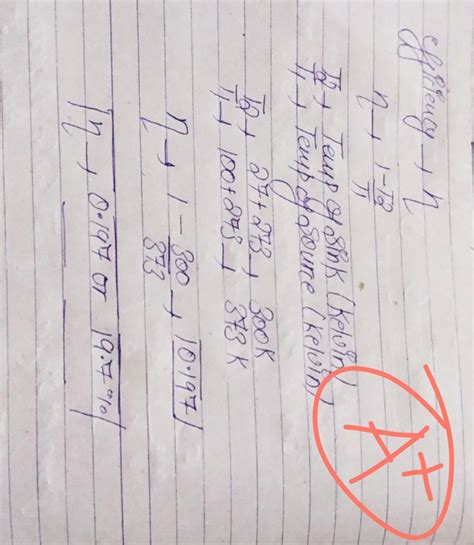 efficiency → η
η → 1 - T2/T1
T2 → Temp of Sink (Kelvin)
T1 → Temp of Source (Kelvin)
T2 → 27+273 → 300K
T1 → 100+273 → 373K
η → 1 - 300/373 → 0.197
η → 0.197 or 19.7%
A+